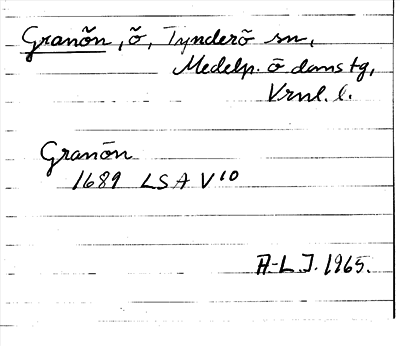 Granön, ö, Tynderö sn,
Medelp. ö doms tg,
Vrnl. l.
Granön
1689 LSA V¹⁰
A-L J. 1965.